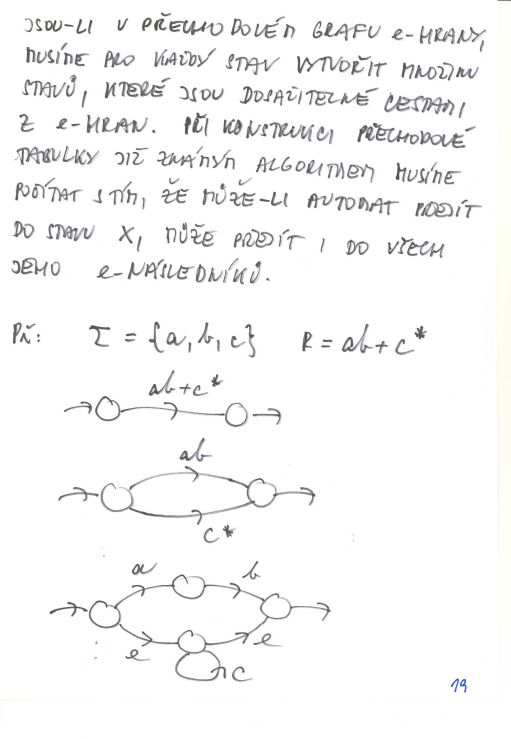 JSOU-LI V PŘECHODOVÉM GRAFU e-HRANY,
MUSÍME PRO KAŽDÝ STAV VYTVOŘIT MNOŽINU
STAVŮ, KTERÉ JSOU DOSAŽITELNÉ CESTAMI
Z e-HRAN. PŘI KONSTRUKCI PŘECHODOVÉ
TABULKY JIŽ ZNÁMÝM ALGORITMEM MUSÍME
POČÍTAT S TÍM, ŽE MŮŽE-LI AUTOMAT PŘEJÍT
DO STAVU X, MŮŽE PŘEJÍT I DO VŠECH
JEHO e-NÁSLEDNÍKŮ.
PŘ: Σ = {a, b, c} R = ab + c*
ab+c*
ab
c*
a b
e e
c
19